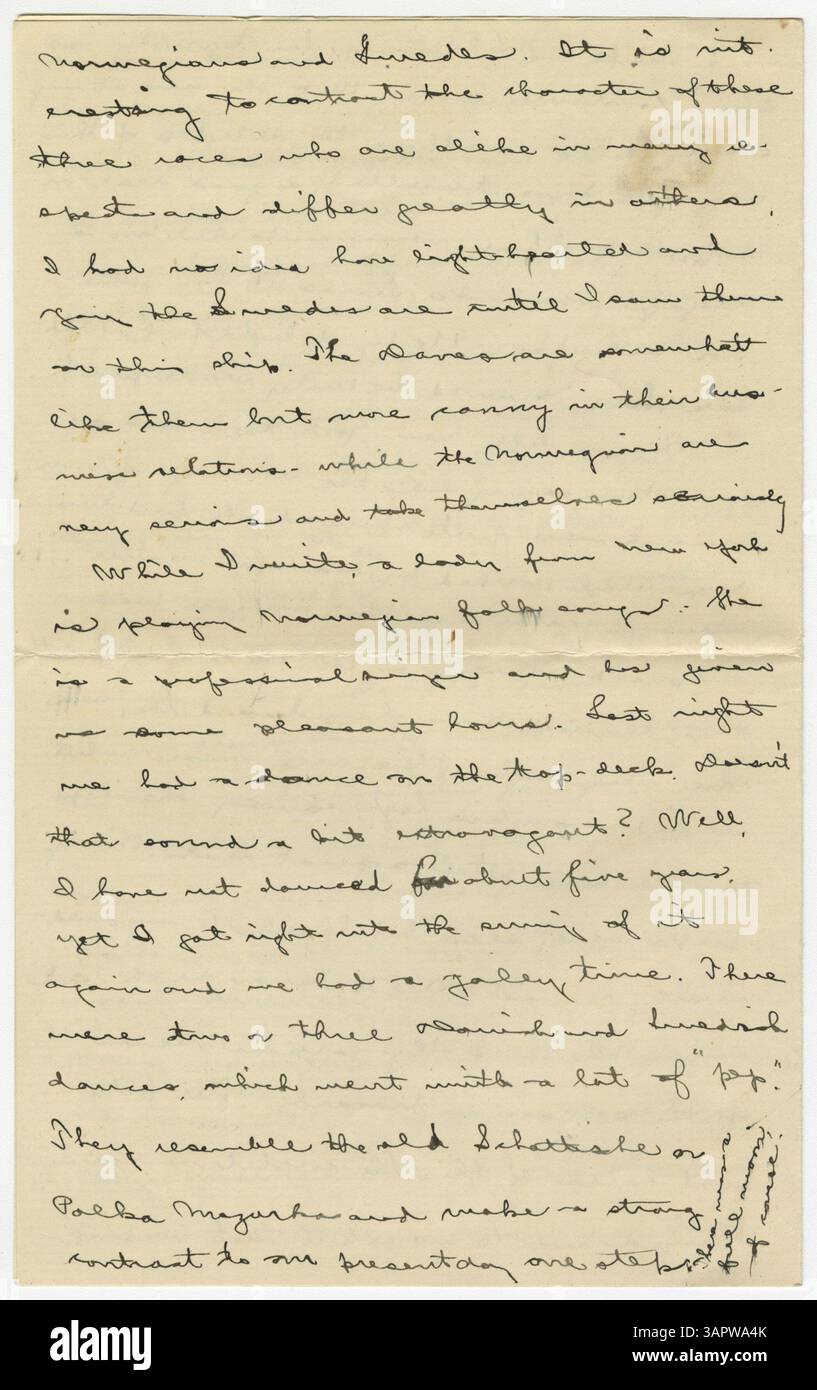 Norwegians and Swedes. It is int-
eresting to contrast the character of these
three races who are alike in many re-
spects and differ greatly in others.
I had no idea how light-hearted and
gay the Swedes are until I saw them
on this ship. The Danes are somewhat
like them but more canny in their bus-
iness relations - while the Norwegian are
very serious and take themselves seriously
While I write, a lady from New York
is playing Norwegian folk songs. She
is a professional singer and has given
us some pleasant hours. Last night
we had a dance on the top-deck. Doesn't
that sound a bit extravagant? Well,
I have not danced for about five years,
yet I got right into the swing of it
again and we had a jolly time. There
were two or three Danish and Swedish
dances, which went with a lot of "pep".
They resemble the old Schottishe or
Polka Mazurka and make a strong
contrast to our present day one steps.
There was a
full moon,
of course!
alamy
Image ID: 3APWA4K
www.alamy.com